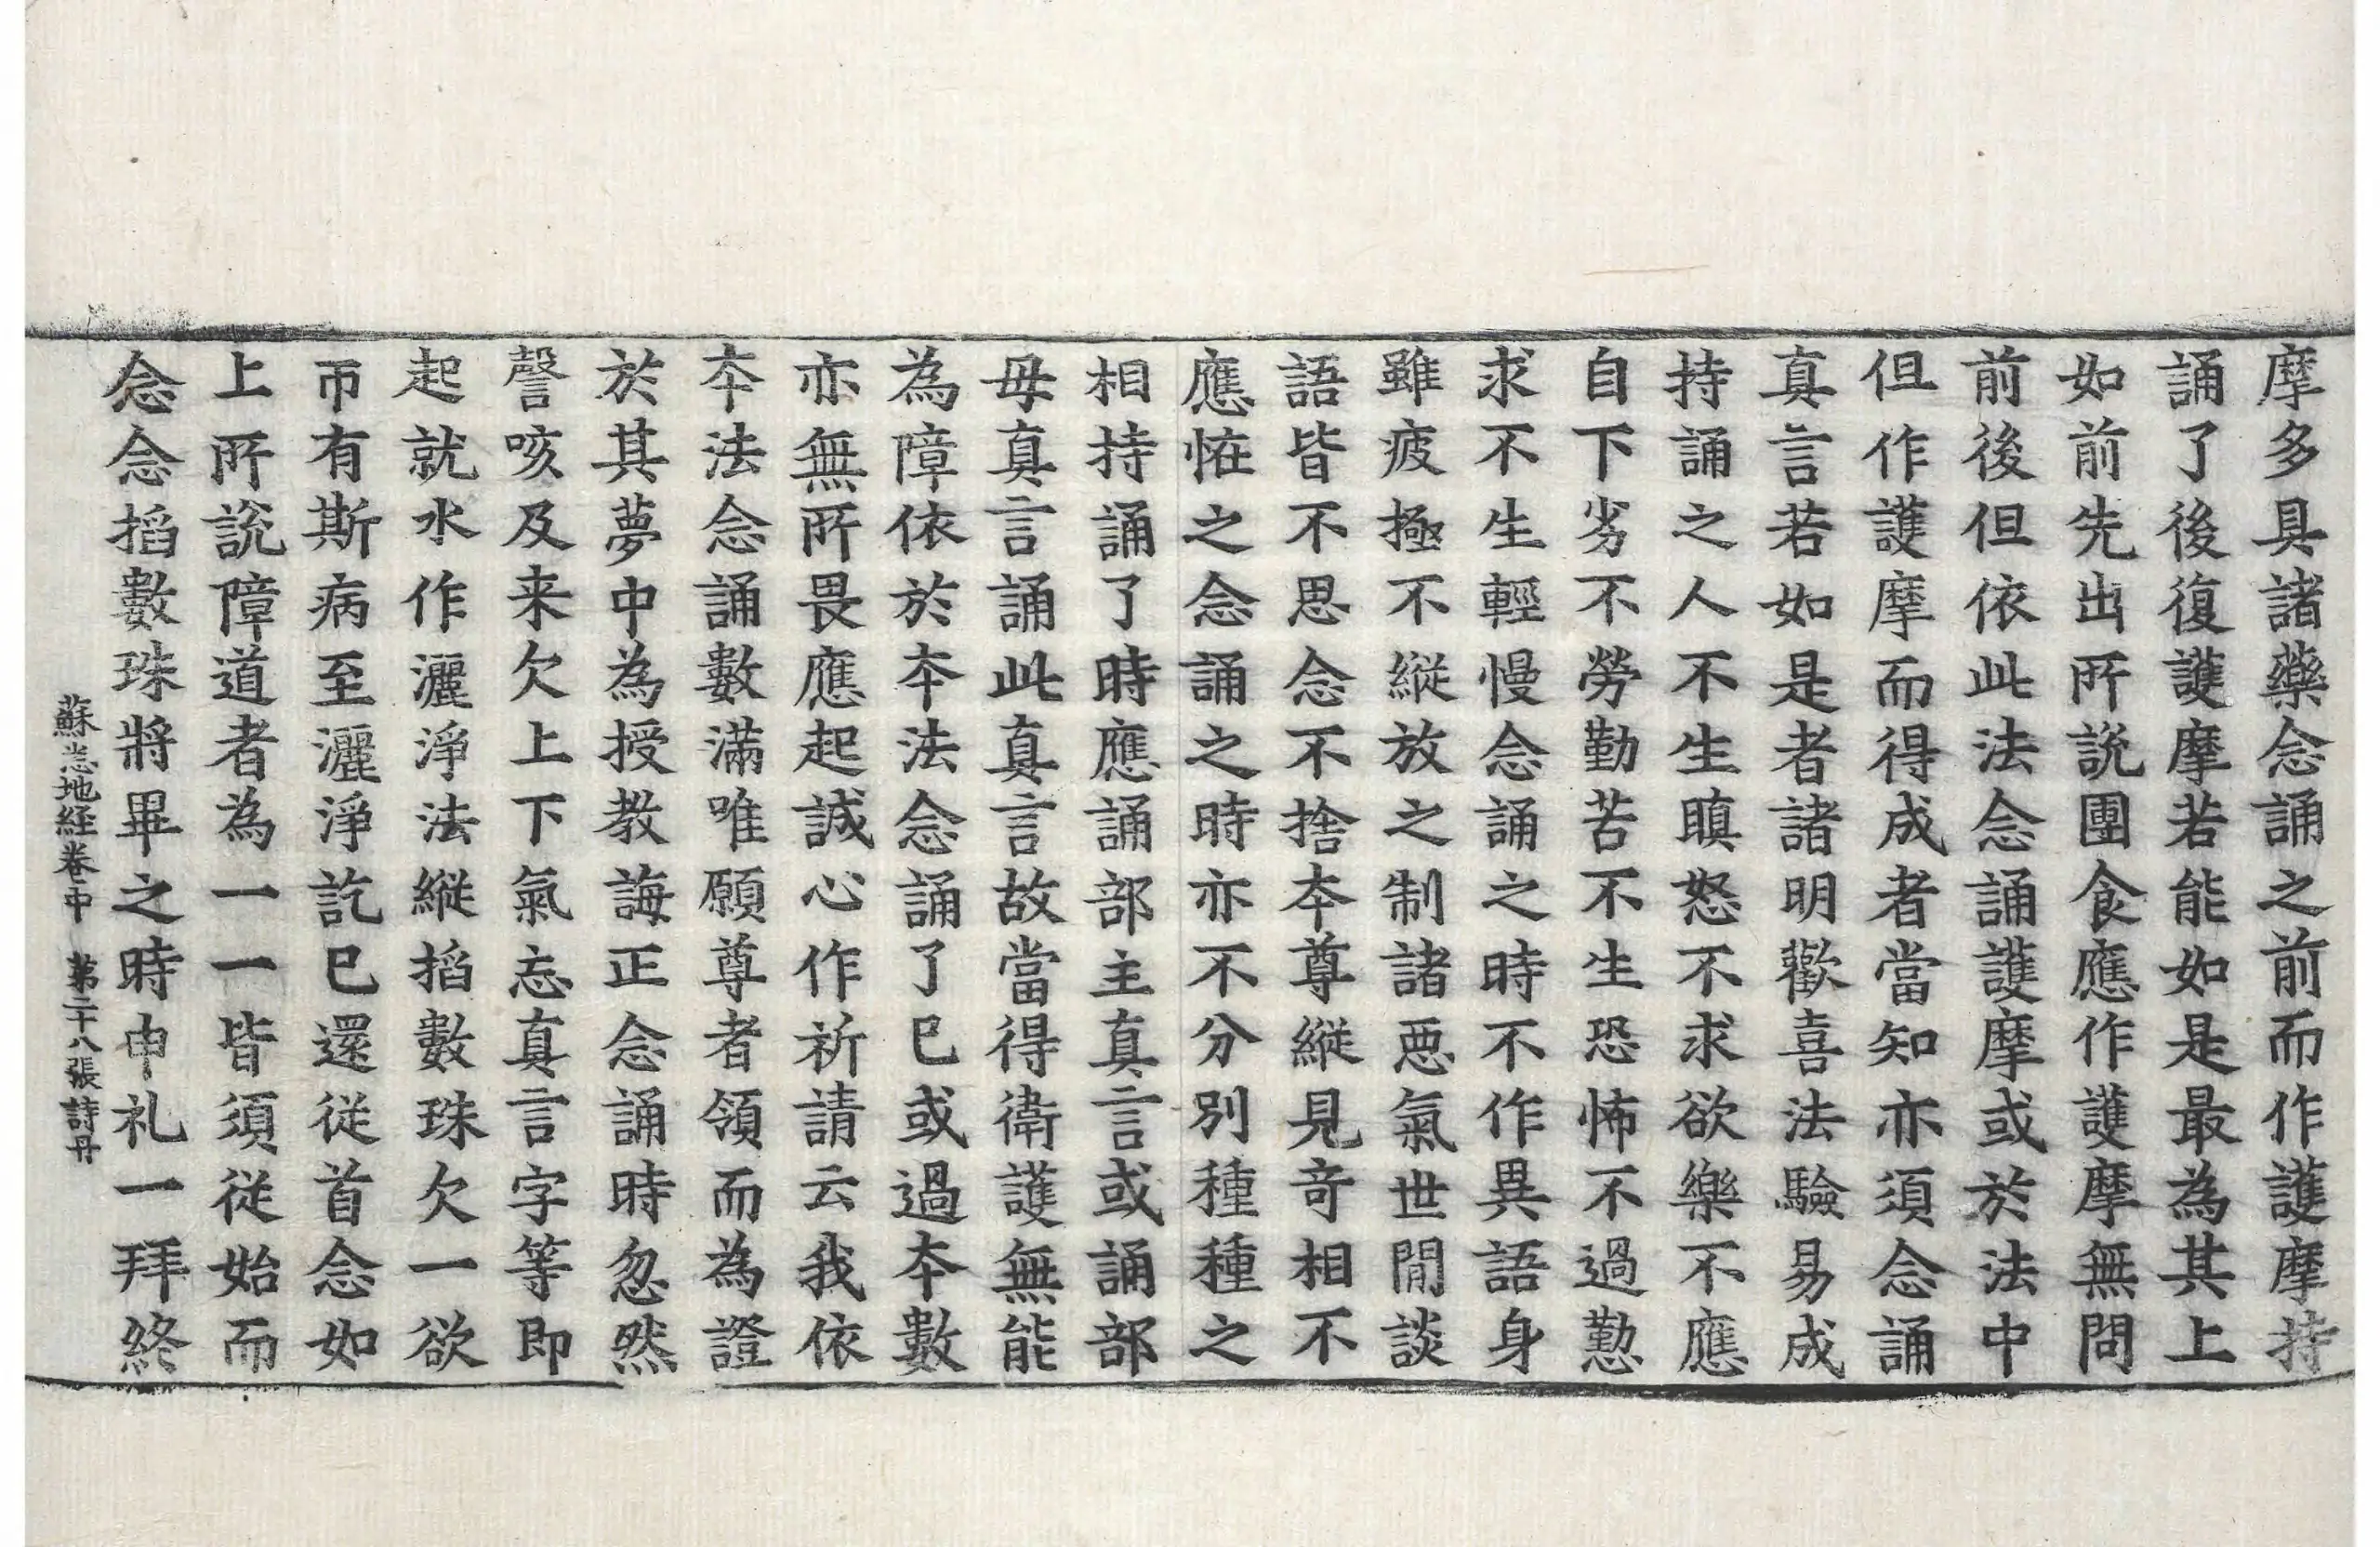 摩多具諸藥念誦之前而作護摩持
誦了後復護摩若能如是最為其上
如前先出所說團食應作護摩無問
前後但依此法念誦護摩或於法中
但作護摩而得成者當知亦須念誦
真言若如是者諸明歡喜法驗易成
持誦之人不生瞋怒不求欲樂不應
自下劣不勞勤苦不生恐怖不過懃
求不生輕慢念誦之時不作異語身
雖疲極不縱放之制諸惡氣世間談
語皆不思念不捨本尊縱見奇相不
應恠之念誦之時亦不分別種種之
相持誦了時應誦部主真言或誦部
母真言誦此真言故當得衛護無能
為障依於本法念誦了已或過本數
亦無所畏應起誠心作祈請云我依
本法念誦數滿唯願尊者領而為證
於其夢中為授教誨正念誦時忽然
謦咳及来欠上下氣忘真言字等即
起就水作灑淨法縱搯數珠欠一欲
帀有斯病至灑淨訖已還從首念如
上所說障道者為一一皆須從始而
念念搯數珠將畢之時申礼一拜終
蘇悉地経卷中 第二十八張 詩丹